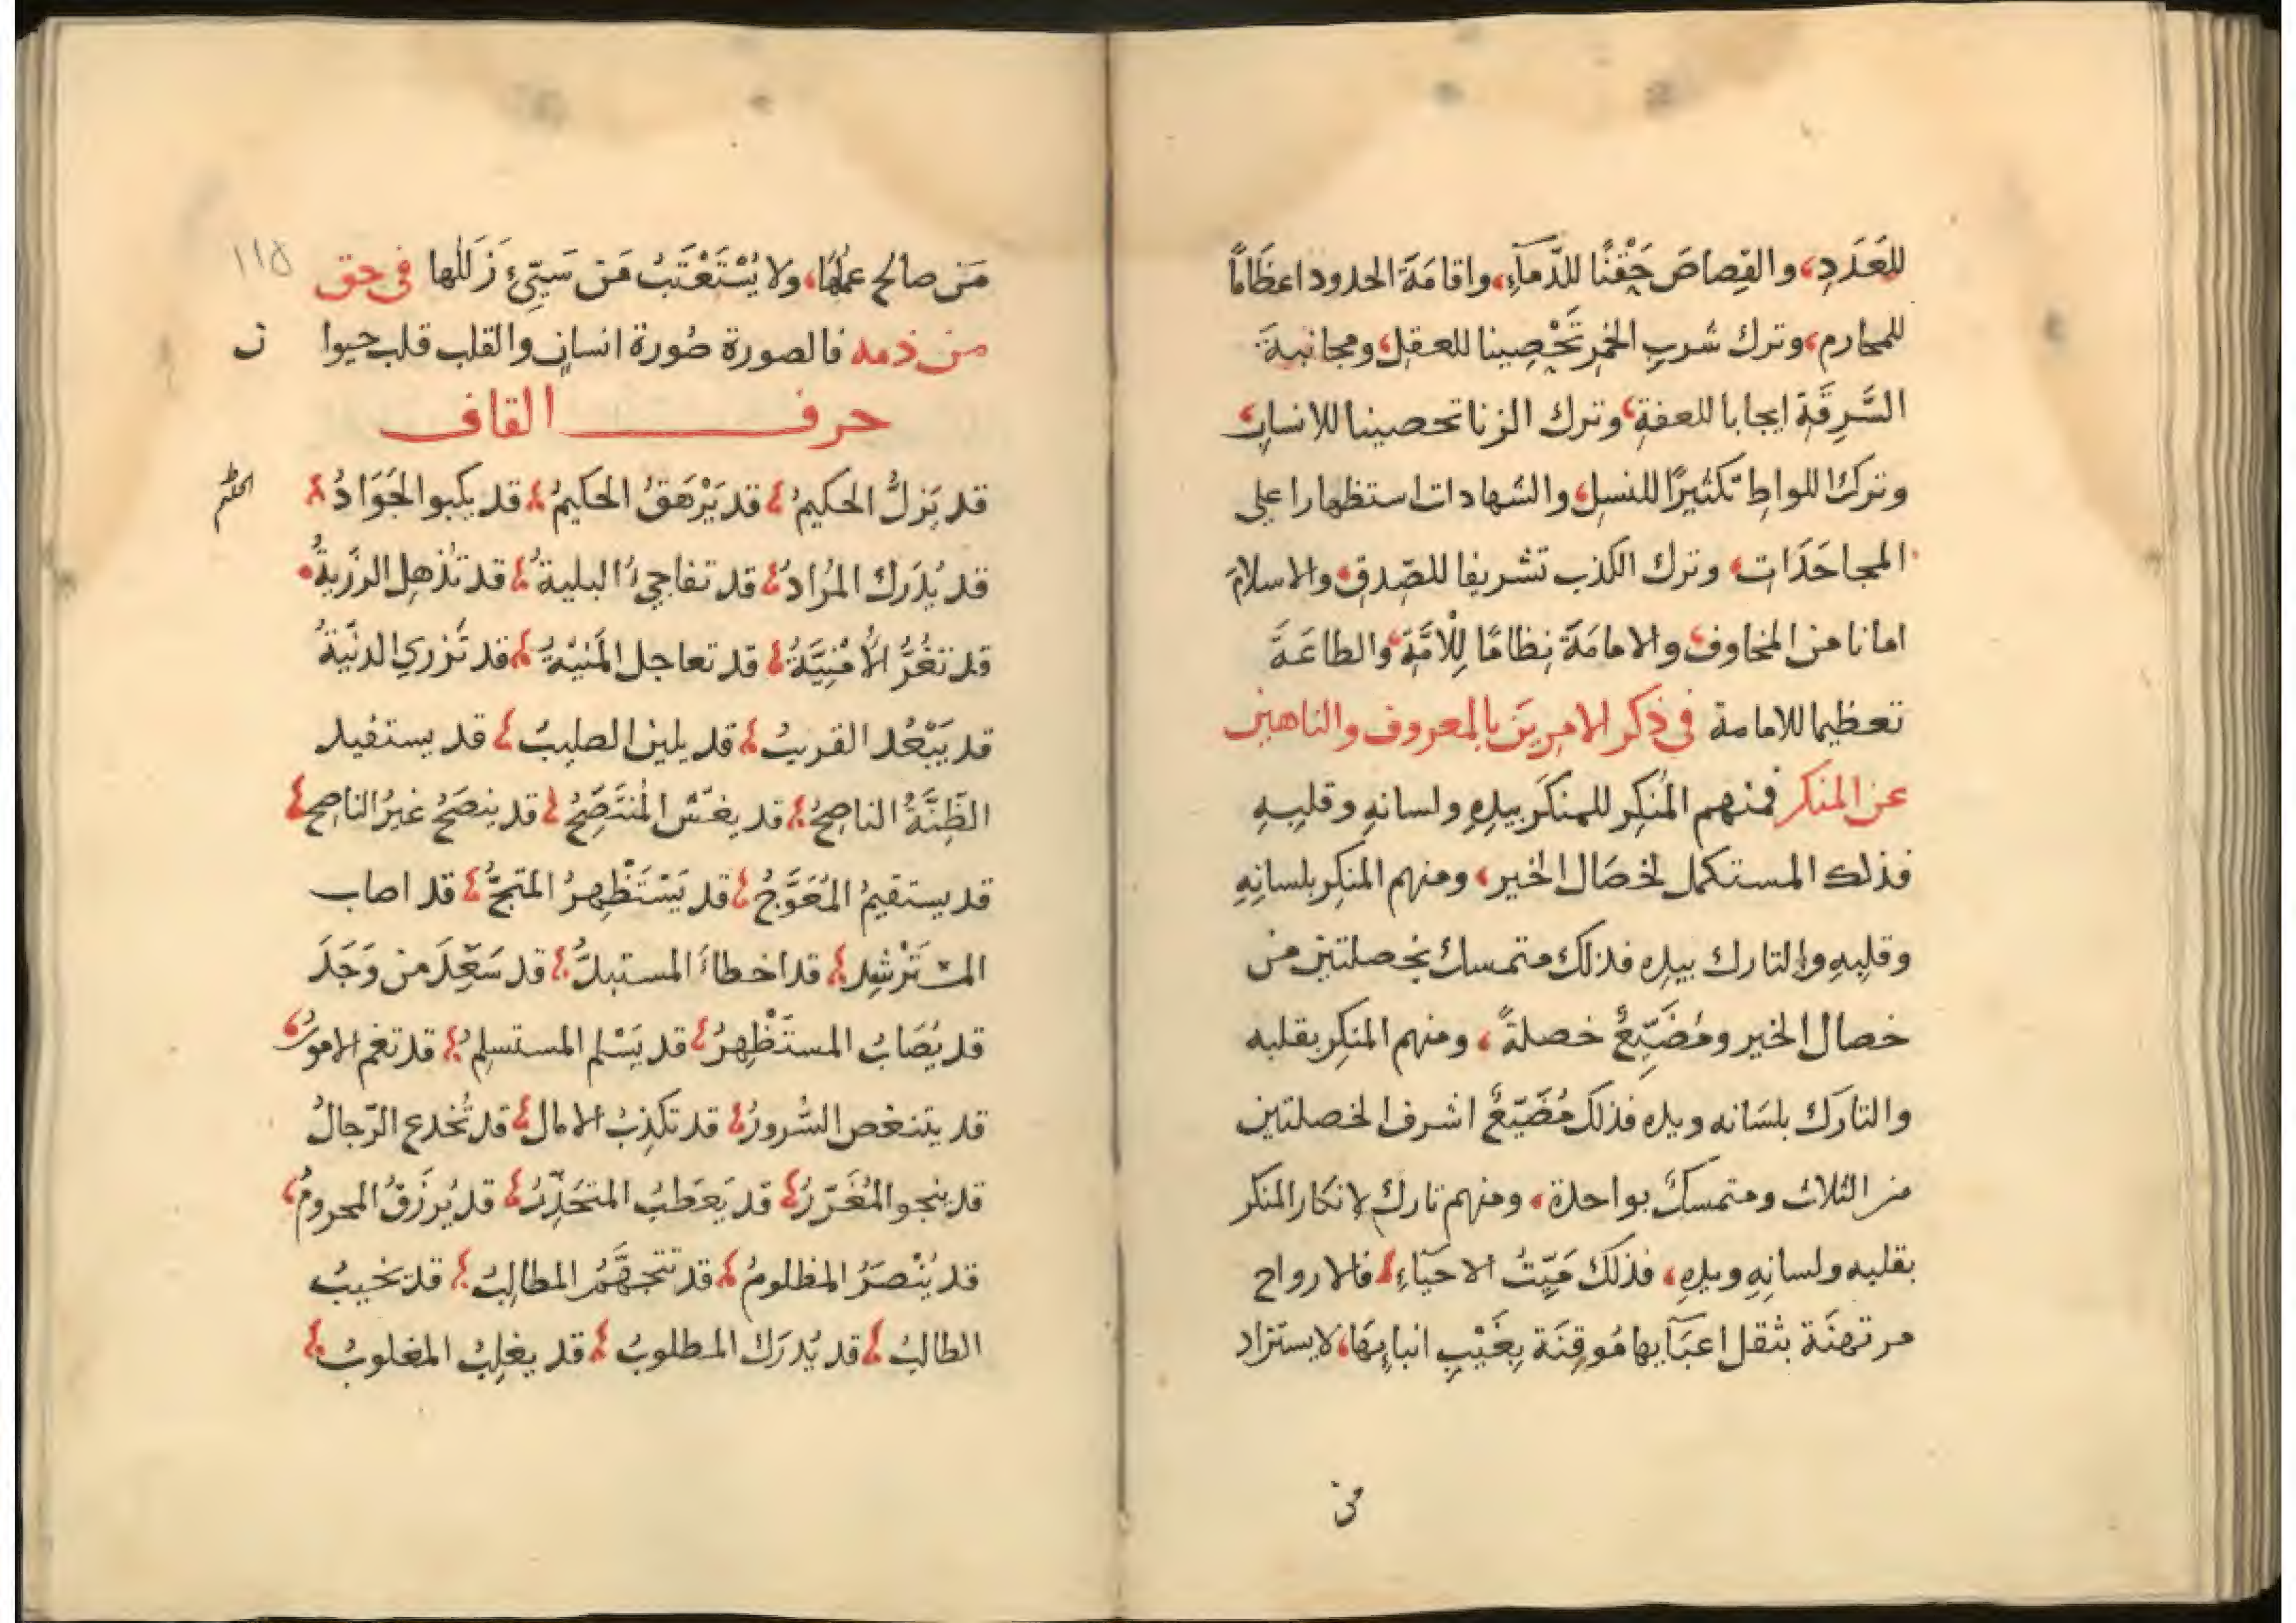 للعَدَدِ، والقِصاصَ حَقْنًا للدّمآءِ، واقامَةَ الحدود اعظَامًا
للمحارم، وترك شربِ الخمرِ تَحْصِينا للعقلِ، ومجانبةَ
السَّرِقَةِ ايجابا للعفةِ، وترك الزنا تحصينا للانسابِ،
وتركَ اللواطِ تكثيرًا للنسلِ، والشهادات استظهارا على
المجاحَدَاتِ، وترك الكذب تشريفا للصّدقِ، والاسلامَ
امانا من المخاوفِ، والامامَةَ نِظامًا لِلْأمَّةِ، والطاعَةَ
تعظيما للامامة في ذكر الامرِينَ بالمعروف والناهين
عن المنكر فمنهم المُنكِر للمنكَر بيدِهِ ولسانهِ وقلبِهِ
فذلك المستكمل لخصَال الخير، ومنهم المنكِر بلسانِهِ
وقلبِهِ والتارك بيدِه فذلك متمسك بخصلتين من
خصال الخير ومُضَيِّعٌ خصلةً، ومنهم المنكِر بقلبه
والتارَك بلسَانه ويده فذلك مُضَيّعٌ اشرف الخصلتين
من الثلاث ومتمسكٌ بواحدة، ومنهم تارك لانكار المنكر
بقلبه ولسانِهِ ويدِهِ، فذلكَ مَيِّتُ الاحيَآءِ؛ فالارواح
مرتهنَة بثقل اعبَآيها مُوقِنَة بِغَيْبِ انبايِهَا، لا يستزاد
من
مَن صالح عملهَا، ولا يُسْتَعْتَبُ مَن سَيّئ زَلَلها في حق ١١٥
من ذمه فالصورة صُورة انسانٍ والقلب قلب حيوا ن
حرف القاف
قد يَزلُّ الحكيمُ؛ قد يَرْهَقُ الحكيمُ؛ قد يكبوا الجَوَادُ؛ الحلم
قد يُدَرك المُرادُ؛ قد تفاجئُ البليةُ؛ قد تَذهل الرزَيةُ
قد تغُرُّ الأمْنِيَّةُ؛ قد تعاجل المَنيّةُ؛ قد تَزري الدنّيةُ
قد يَبْعُد القريبُ؛ قد يلين الصليبُ؛ قد يستفيد
الظِنَّةُ الناصحُ؛ قد يغشّ المُنتَصِّحُ؛ قد ينصَحُ غيرُ الناصح؛
قد يستقيمُ المُعَوَّجُ؛ قد يَسْتَظْهِرُ المحتجُّ؛ قد اصاب
المسترْشِد؛ قد اخطاءَ المستبدُّ؛ قد سَعِدَ من وَجَدَ
قد يُصَابُ المستَظْهِرُ؛ قد يَسْلم المستسلِمُ؛ قد تغم الامورُ،
قد يتنغص السُّرورُ؛ قد تكذِبُ الامال؛ قد تُخدع الرّجالُ
قد ينجو المُغَرّرُ؛ قد يَعطبُ المتحَذِّرُ؛ قد يُرزَقُ المحرومُ،
قد يُنْصَرُ المظلومُ؛ قد تتجهَّمُ المطالِبُ؛ قد يخيبُ
الطالبُ؛ قد يُدرَك المطلوبُ؛ قد يغلِبُ المغلوبُ؛